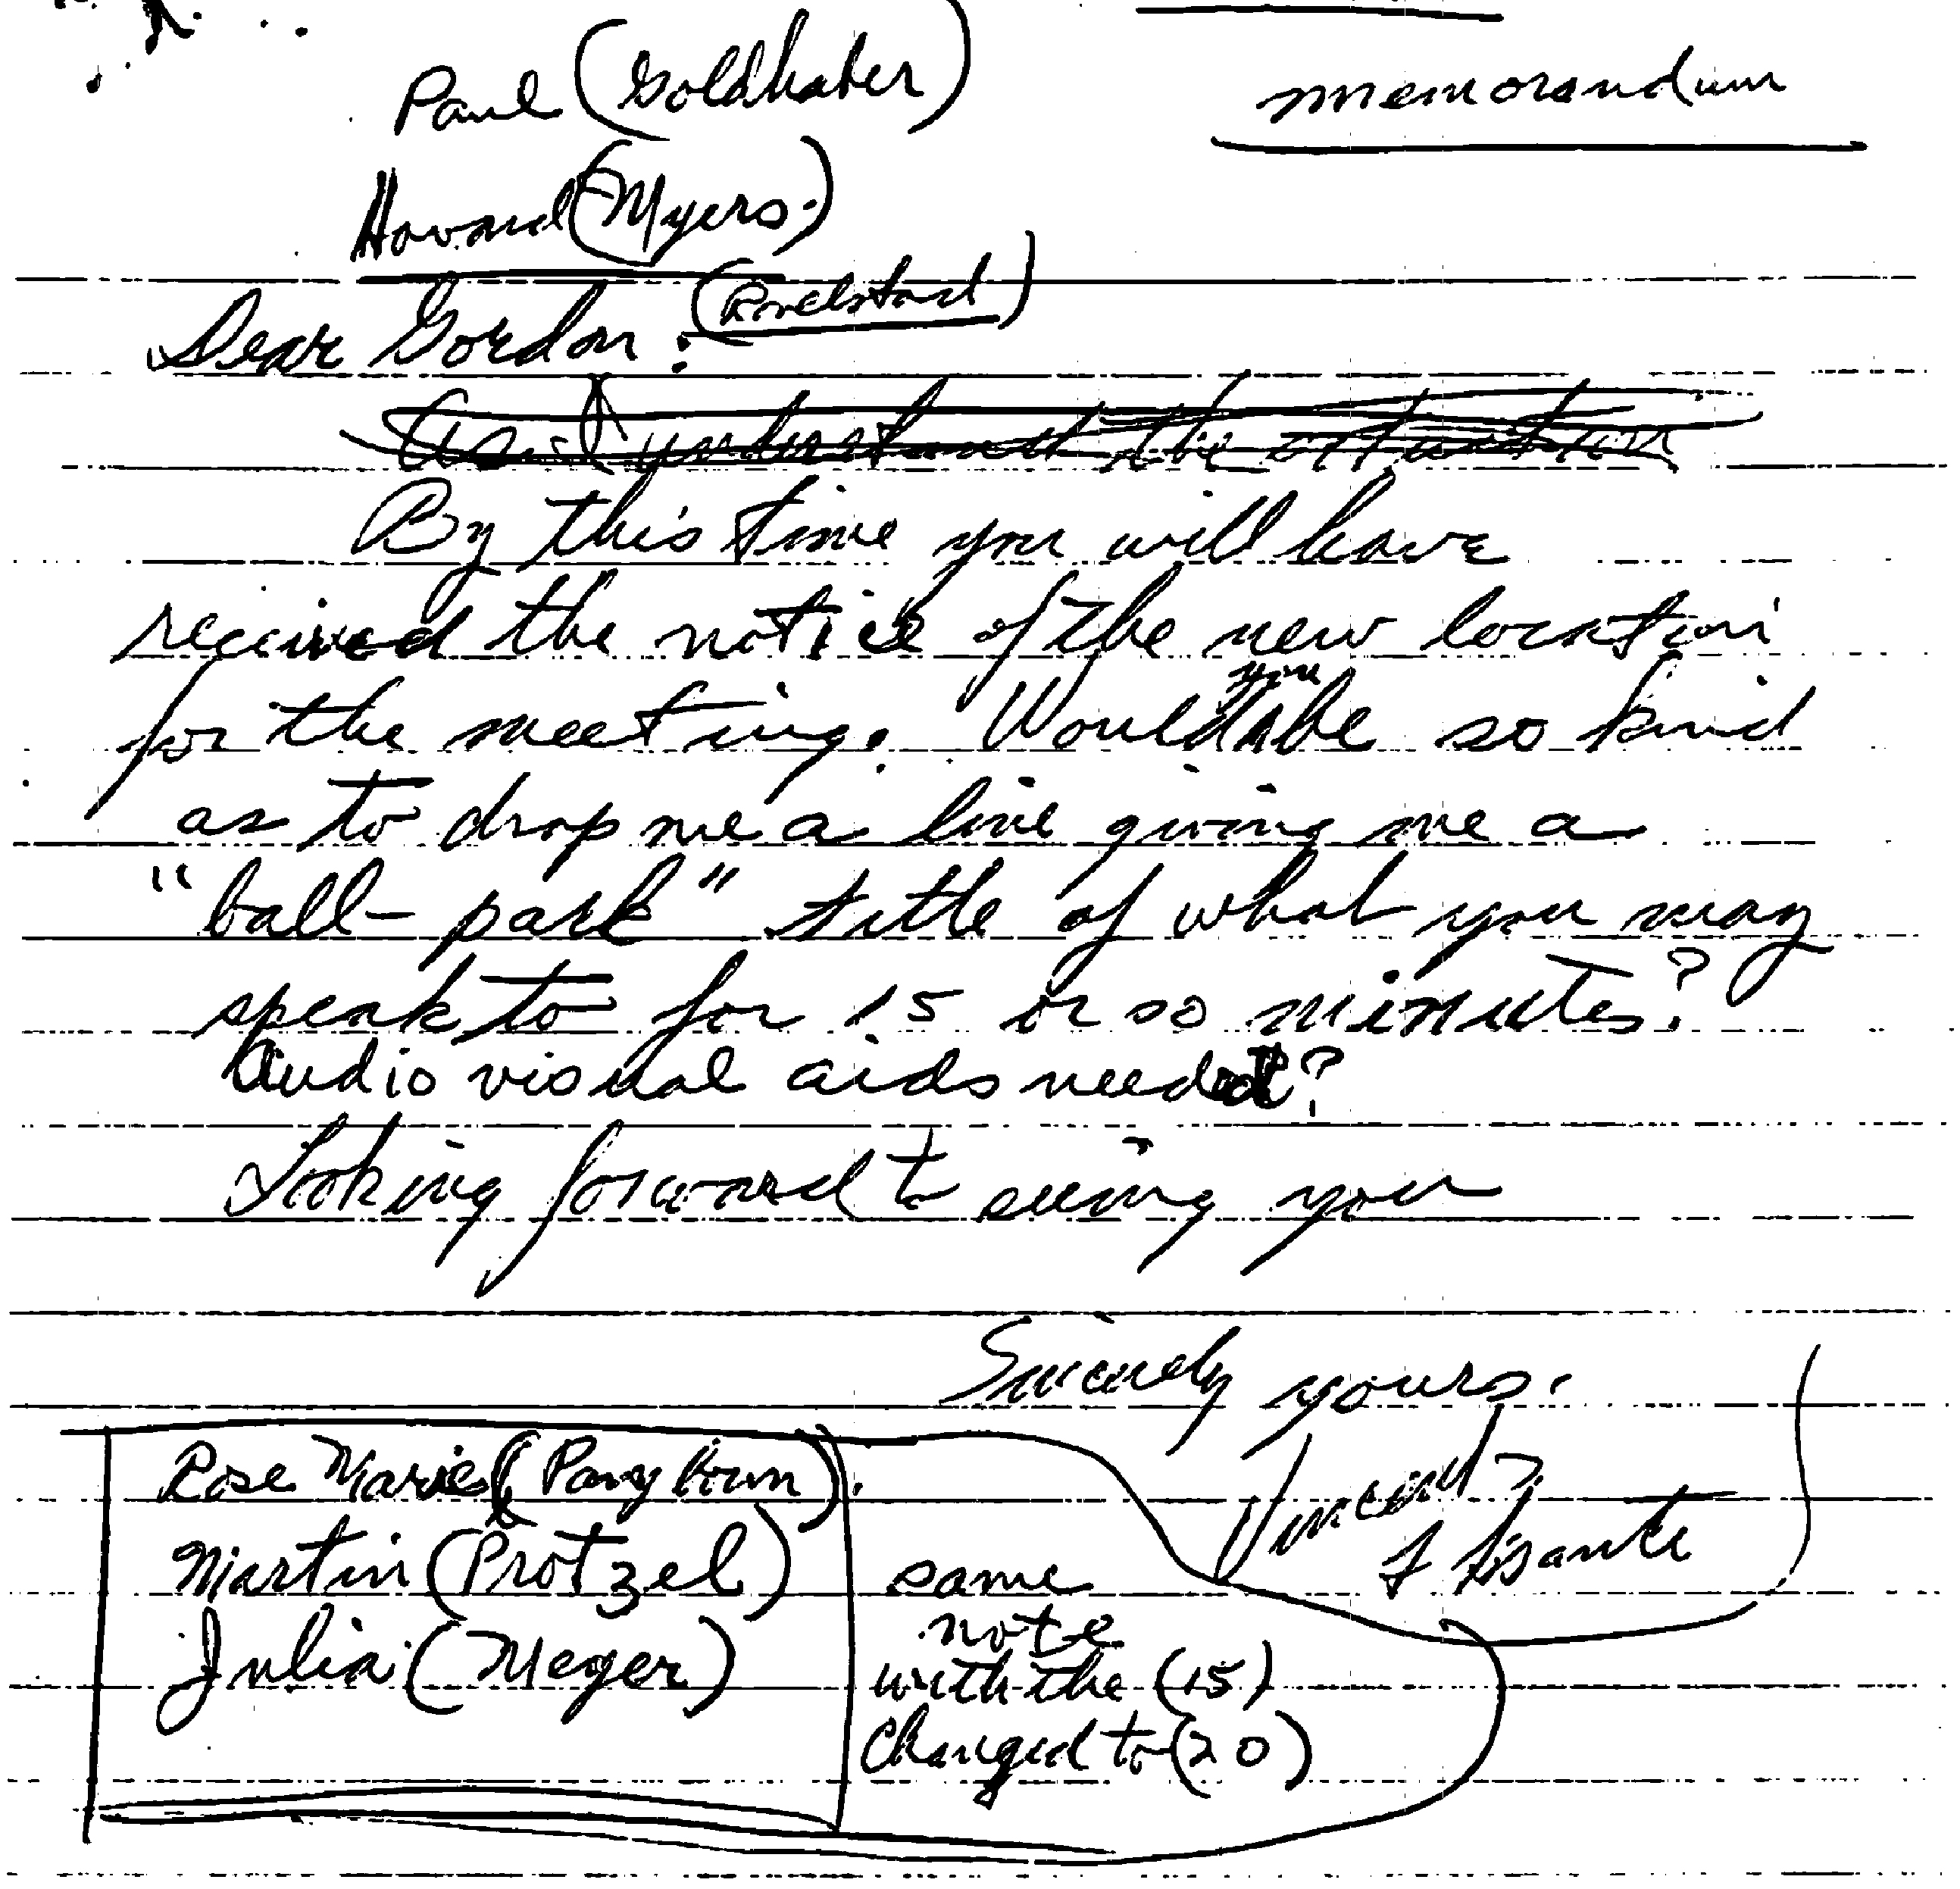 Paul (Goldhaber)
memorandum
Howard (Myers.)
Dear Gordon: (Rovelstad)
As I understand the situation
By this time you will have
received the notice of the new location
for the meeting. Would you be so kind
as to drop me a line giving me a
"ball-park" title of what you may
speak to for 15 or so minutes?
Audio visual aids needed?
Looking forward to seeing you
Sincerely yours.
Vincent
F Lisanti
Rose Marie (Pangborn).
Martin (Protzel)
Julia (Meyer)
same
note
with the (15)
Changed to (20)